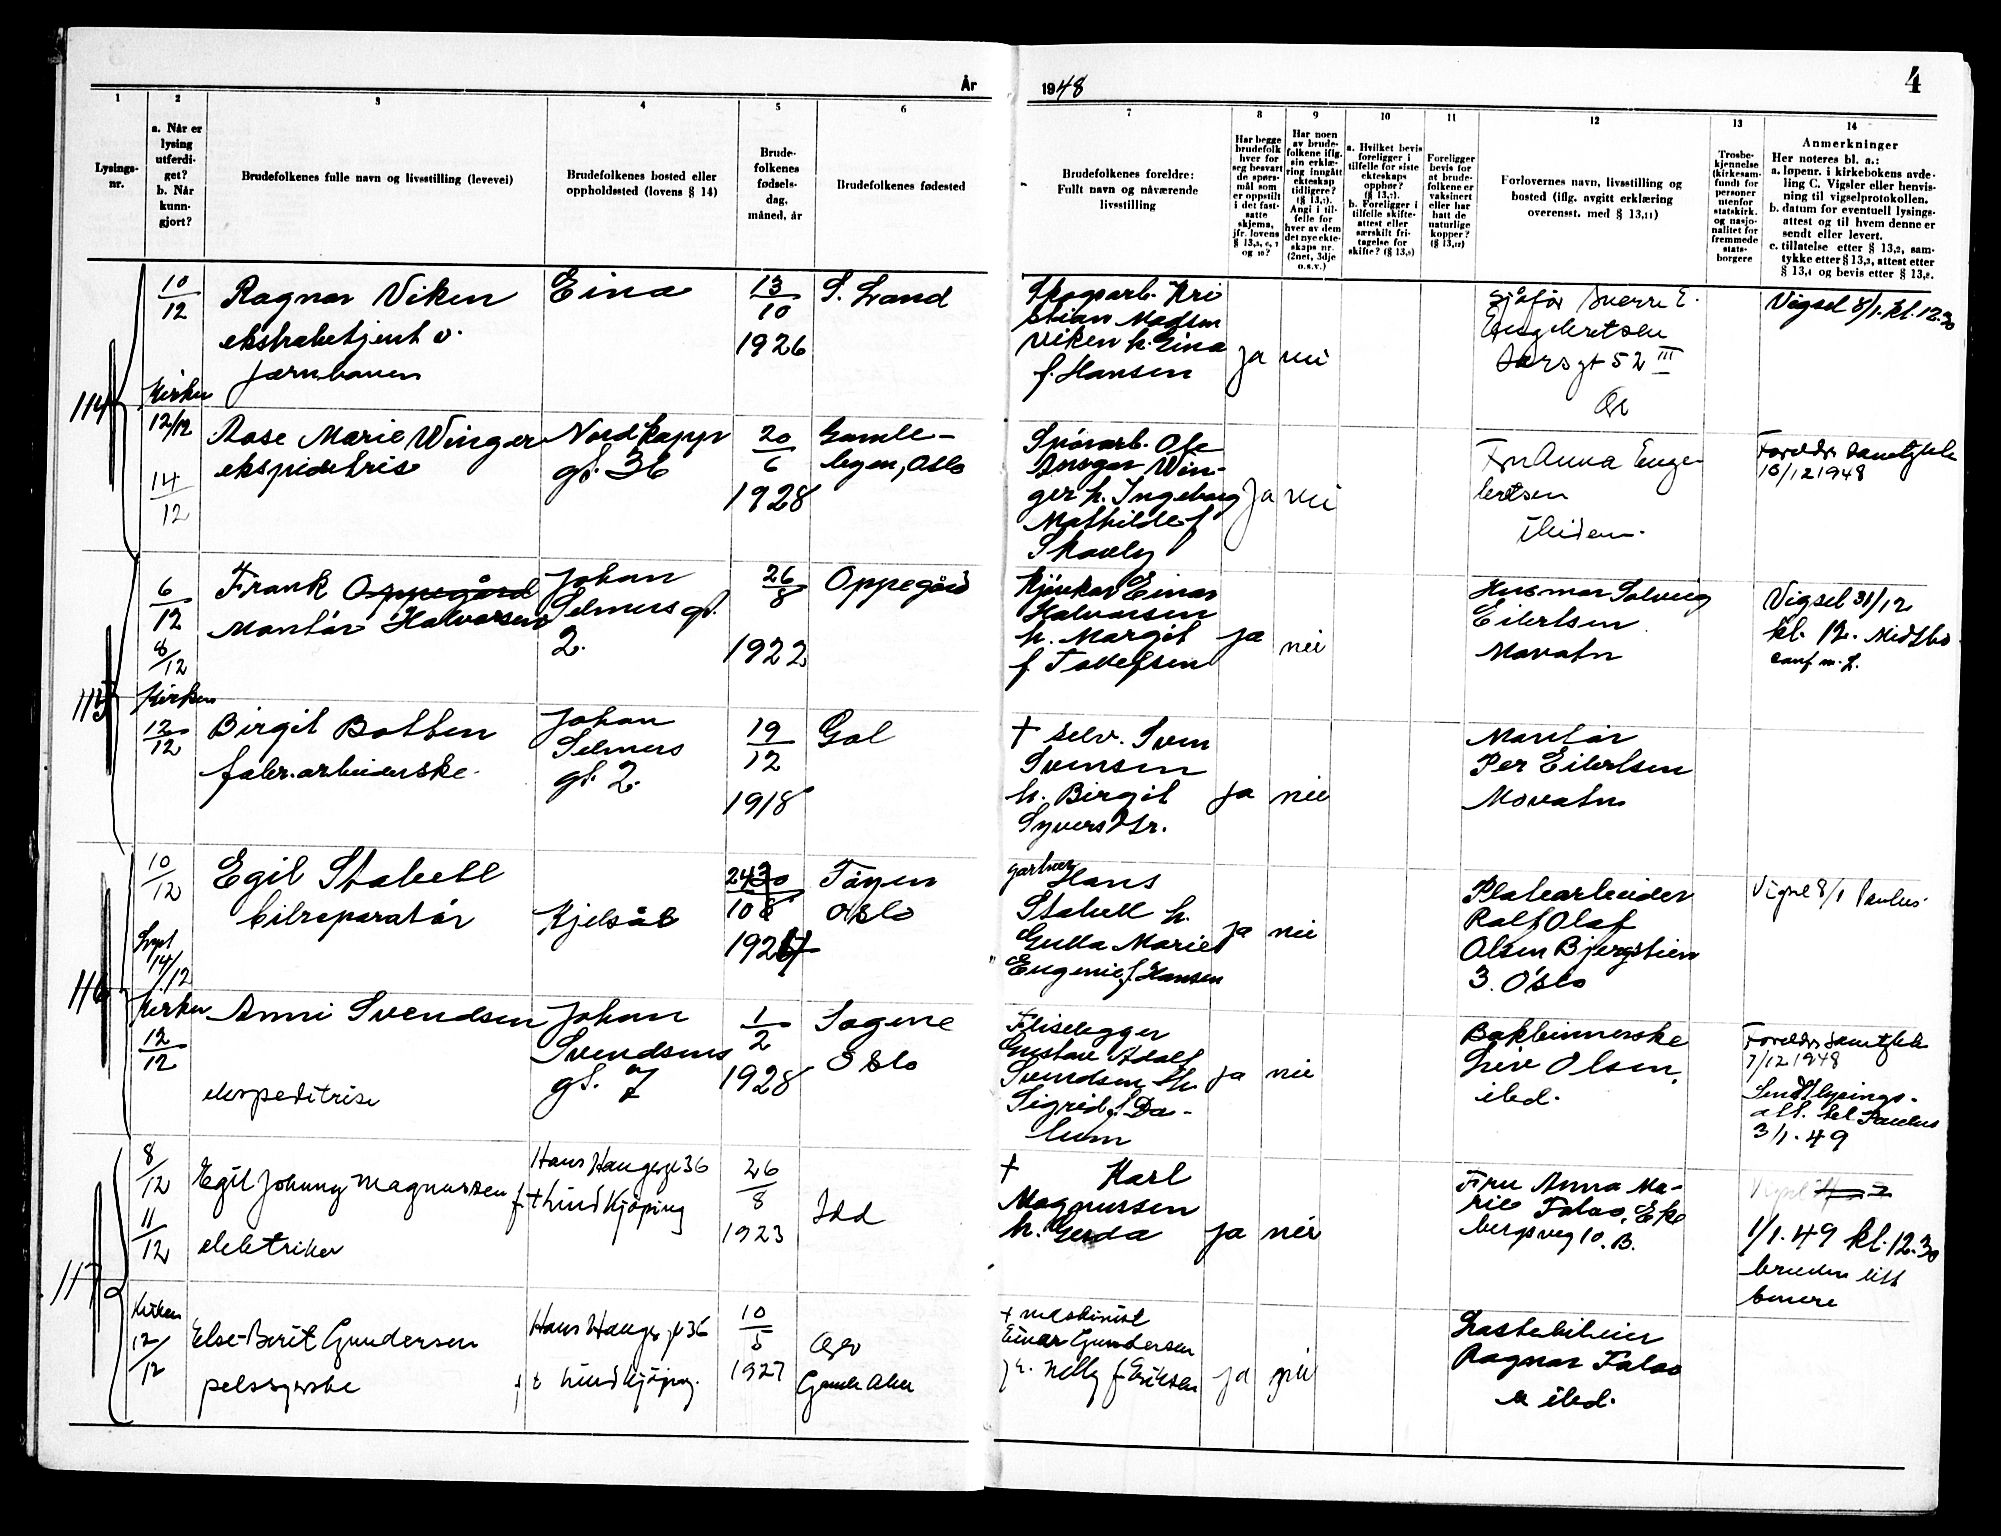 År
1948
4
1
2
3
4
5
6
7
8
9
10
11
12
13
14
Lysings-
nr.
a. Når er
lysing
utferdi-
get?
b. Når
kunn-
gjort?
Brudefolkenes fulle navn og livsstilling (levevei)
Brudefolkenes bosted eller
oppholdssted (lovens § 14)
Brude-
folkenes
fødsels-
dag,
måned, år
Brudefolkenes fødested
Brudefolkenes foreldre:
Fullt navn og nåværende
livsstilling
Har begge
brudefolk
hver for
seg besvart
de spørs-
mål som
er oppstilt
i det fast-
satte
skjema,
jfr. lovens
Har noen
av brude-
folkene iflg.
sin erklæ-
ring inngått
ekteskap
tidligere?
Angi i til-
felle for
hver av dem
det nye ekte-
skaps nr.
(2net, 3dje
o.s.v.)
a. Hvilket bevis
foreligger i
tilfelle for siste
ekteskaps
opphør?
b. Foreligger i
tilfelle skifte-
attest eller
særskilt fri-
tagelse for
skifte?
Foreligger
bevis for
at brude-
folkene er
vaksinert
eller har
hatt de
naturlige
kopper?
Forlovernes navn, livsstilling og
bosted (iflg. avgitt erklæring
overensst. med § 13,11)
Trosbe-
kjennelse
(kirkesam-
fund) for
personer
utenfor
statskirk.
og nasjo-
nalitet for
fremmede
stats-
borgere
Anmerkninger
Her noteres bl. a.:
a. løpenr. i kirkebokens avde-
ling C. Vigsler eller henvis-
ning til vigselprotokollen.
b. datum for eventuell lysings-
attest og til hvem denne er
sendt eller levert.
c. tillatelse etter § 13,2, sam-
tykke etter § 13,3, attest etter
§ 13,4 og bevis etter § 13,8.
114
10/12
Kirken
12/12
14/12
Ragnar Viken
ekstrabetjent v.
jernbanen
Eina
13/10
1926
S. Land
Skogsarb. Kri
stian Madsen
Viken h. Eina
f. Hansen
ja
nei
Sjåfør Sverre E.
Engebretsen
Sarsgt 52 III
Vigsel 8/1. kl. 12.30
Aase Marie Winger
ekspiditrise
Nordkapp
gt. 36
20/6
1928
Gamle-
byen, Oslo
Sporarb. Ole
Ansgar Win-
ger h. Ingeborg
Mathilde f
Skauly
ja
nei
Fru Anna Enge
bretsen
ibidem.
Foreldres samtykke
10/12 1948
115
6/12
8/12
Kirken
12/12
Frank Oppegård
Montør Halvorsen
Johan
Selmers gt.
2.
26/8
1922
Oppegård
Kjørekar Einar
Halvorsen
h. Margit
f Tollefsen
ja
nei
Husmor Solveig
Eilertsen
Movatn
Vigsel 31/12
kl. 12. Midtbo
Birgit Botten
fabr.arbeiderske.
Johan
Selmers
gt. 2.
19/12
1918
Gol
† selv. Sven
Svensen
h. Birgit
Syversdtr.
ja
nei
Montør
Per Eilertsen
Movatn
116
10/12
14/12
Kirken
12/12
Egil Stabell
bilreparatør
Kjelsås
Tøyen
Oslo
gartner
Hans
Stabell h.
Gulla Marie
Eugenie f. Hansen
ja
nei
Platearbeider
Ralf Olaf
Olsen Bjergstien
3. Oslo
Vigsel 8/1 Paulus
Anni Svendsen
ekspeditrise
Johan
Svendsens
gt. 7
1/2
1928
Sagene
Oslo
Fliselegger
Gustav Adolf
Svendsen h.
Sigrid f. Da-
lum
ja
nei
Bokbinnerske
Liv Olsen,
ibid.
Foreldres samtykke
7/12 1948
Sendt lysings-
att. til Paulus
3/1. 49
117
8/12
11/12
Kirken
12/12
Egil Johnny Magnussen
elektriker
Hans Hauges gt 36
f. t. Lindkjøping
26/8
1923
Idd
† Karl
Magnussen
h. Gerda
ja
nei
Fru Anna Ma-
rie Falao, Eke
bergsveg 10. B.
1/1. 49 kl. 12.30
bruden litt
senere
Else-Berit Gundersen
pelssyerske
Hans Hauges gt 36
f. t. Lindkjøping.
10/5
1927
Oslo
Gamle Aker
† maskinist
Einar Gundersen
h. Nelly f Eriksen
ja
nei
Lastebileier
Ragnar Falao
ibid.